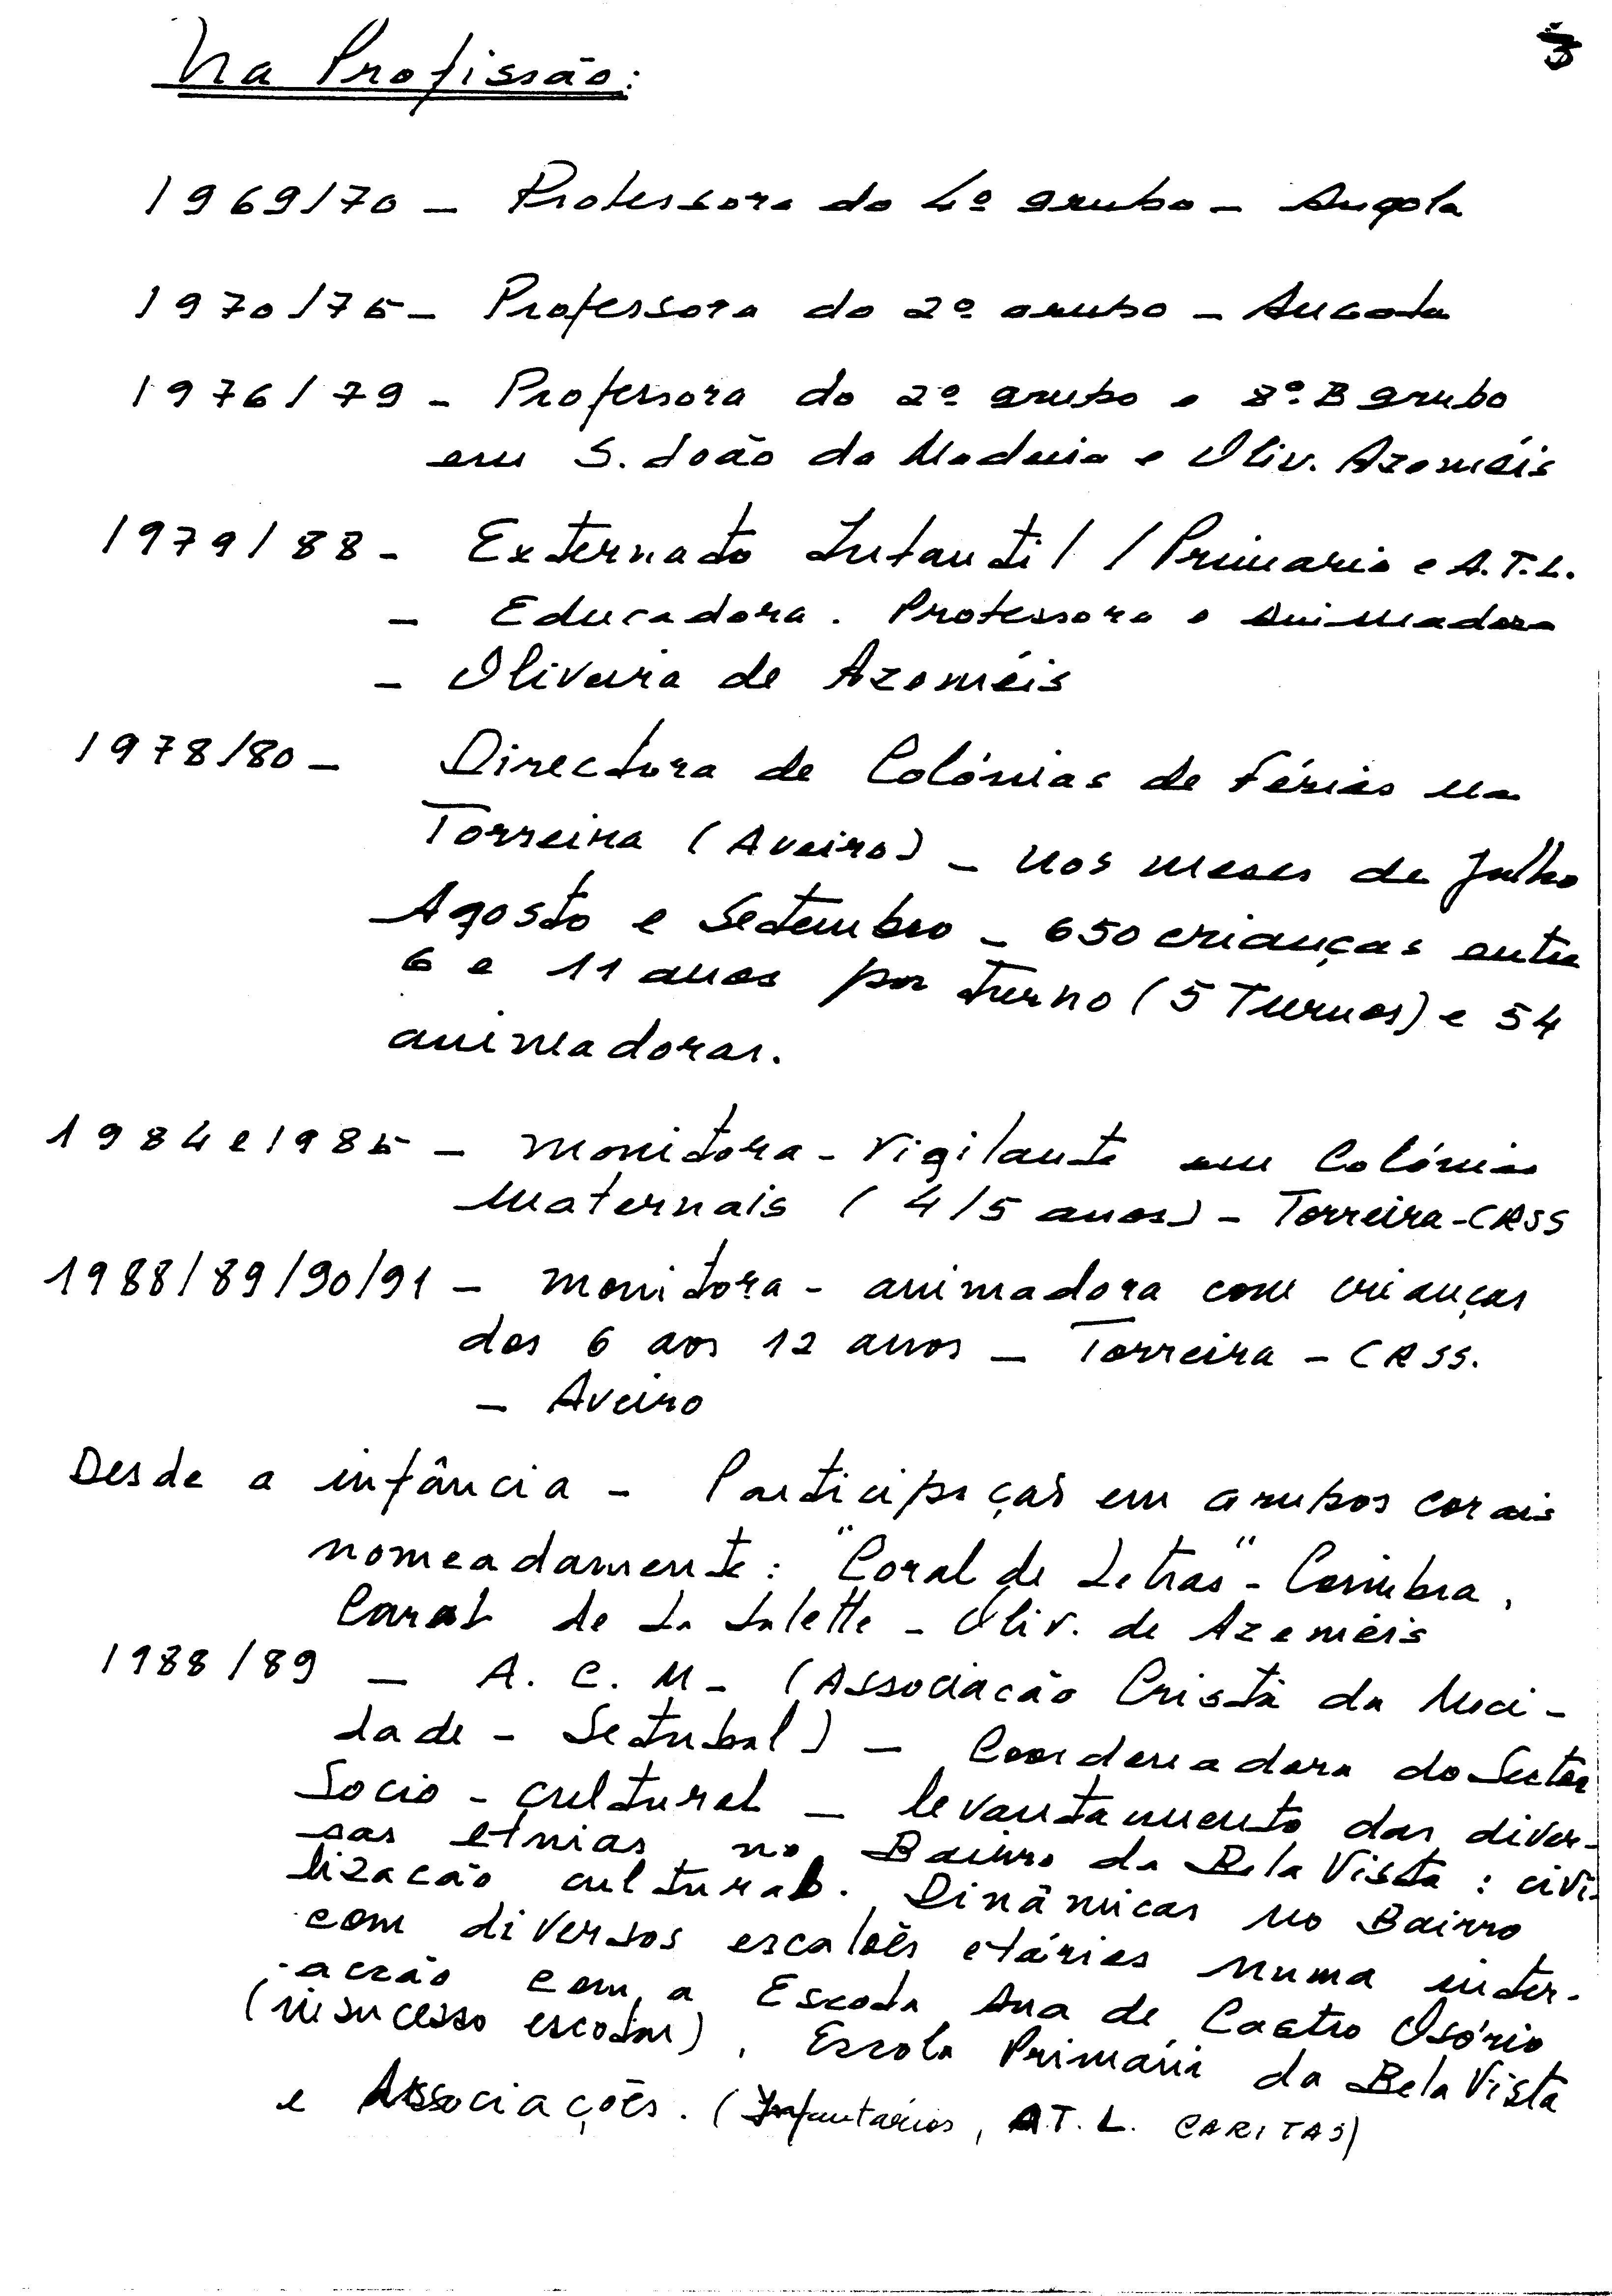 Na Profissão:
3
1969/70 - Professora do 4º grupo - Angola
1970/75 - Professora do 2º grupo - Angola
1976/79 - Professora do 2º grupo e 8º.B grupo
em S. João da Madeira e Oliv. Azeméis
1979/88 - Externato Infantil / Primário e A.T.L.
- Educadora. Professora e animadora
- Oliveira de Azeméis
1978/80 - Directora de Colónias de Férias na
Torreira (Aveiro) - nos meses de Julho
Agosto e Setembro - 650 crianças entre
6 e 11 anos por turno (5 Turnos) e 54
animadoras.
1984 e 1985 - Monitora - Vigilante em Colónias
Maternais (4/5 anos) - Torreira - CRSS
1988/89/90/91 - Monitora - animadora com crianças
dos 6 aos 12 anos - Torreira - CRSS.
- Aveiro
Desde a infância - Participação em grupos corais
nomeadamente: "Coral de Letras" - Coimbra,
Coral de La Salette - Oliv. de Azeméis
1988/89 - A. C. M - (Associacão Cristã da Moci-
dade - Setubal) - Coordenadora do Sector
Socio - cultural - levantamento das diver-
sas etnias no Bairro da Bela Vista: civi-
lizacão cultural. Dinâmicas no Bairro
com diversos escalões etários numa inter-
acção com a Escola Ana de Castro Osório
(insucesso escolar), Escola Primária da Bela Vista
e Associações. (Infantários, A.T.L. CARITAS)